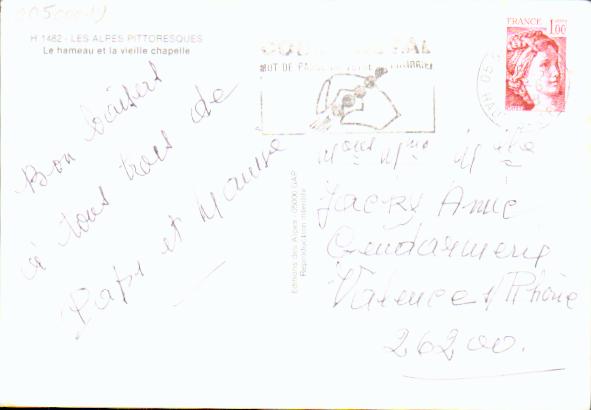 00500019
H 1482 - LES ALPES PITTORESQUES
Le hameau et la vieille chapelle
Bon baisers
à tous trois de
Papi et Mamie
Editions des Alpes - 05000 GAP
Reproduction interdite
CODE POSTAL
MOT DE PASSE DE VOTRE COURRIER
FRANCE 1,00
Mme Mlle
Jacky Anne
Gendarmerie
Valence s/ Rhône
26200.